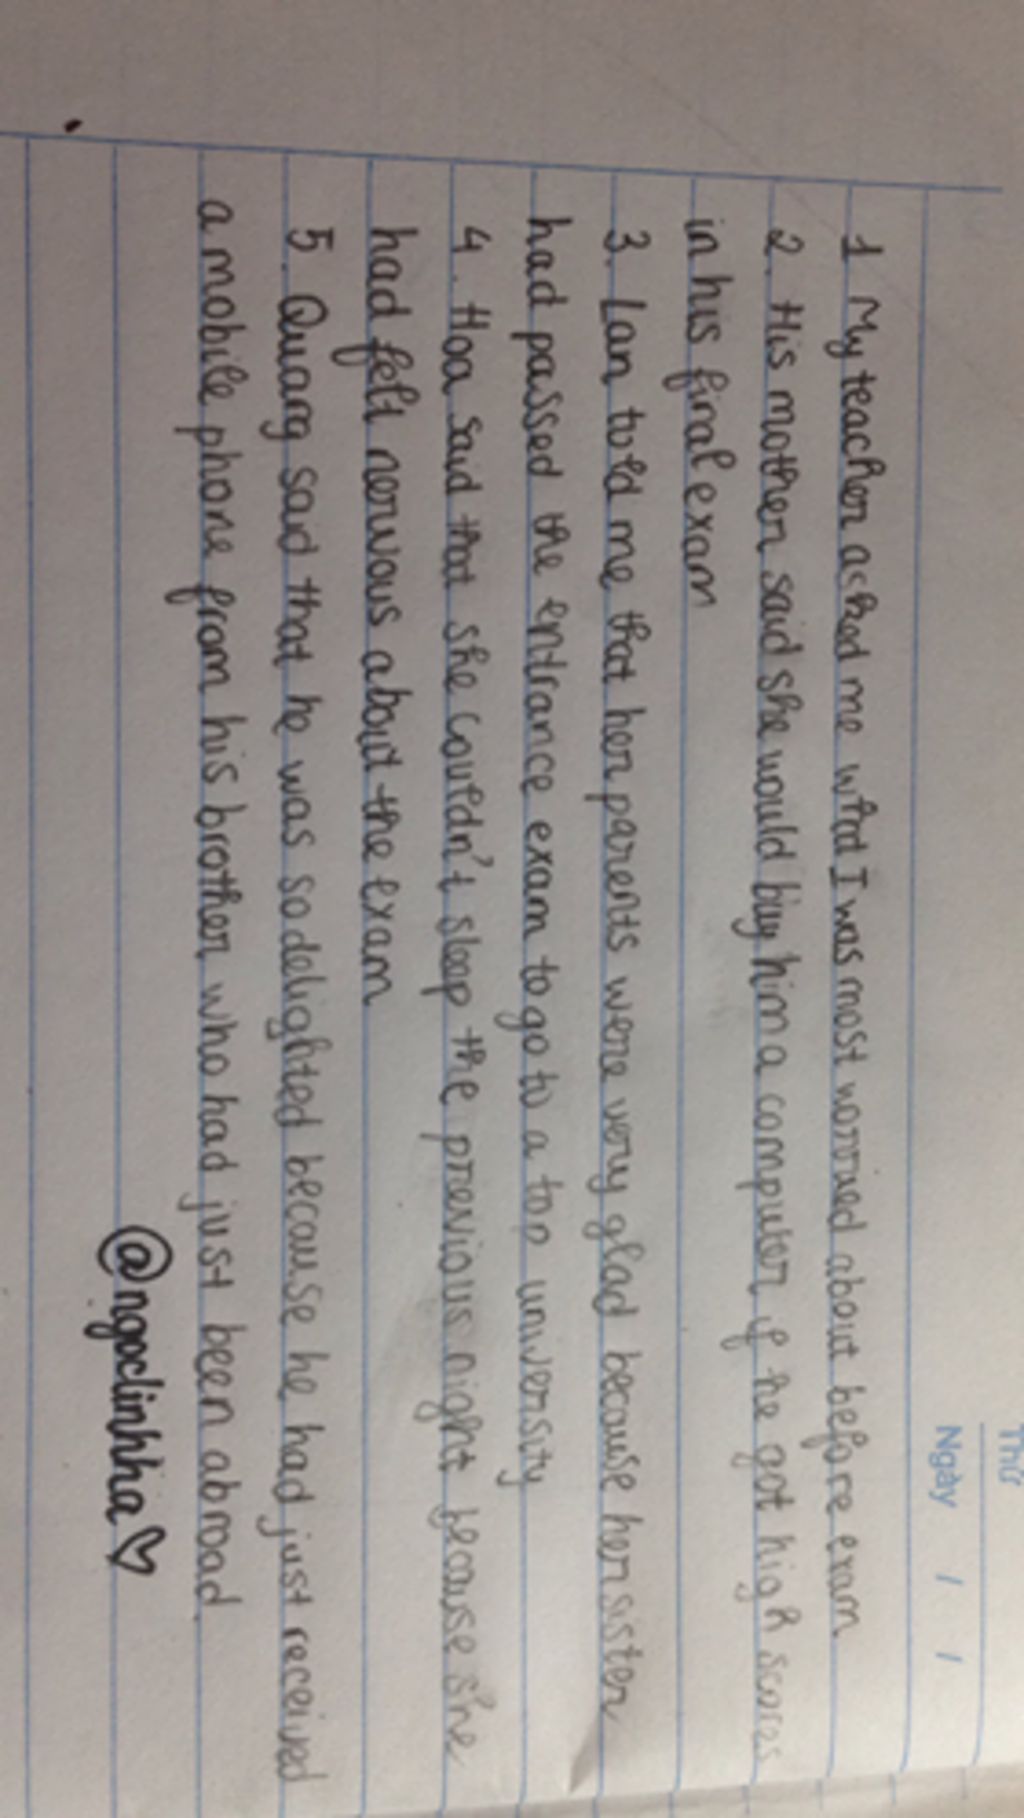 Thứ
Ngày / /
1 My teacher asked me what I was most worried about before exam
2. His mother said she would buy him a computer if he got high scores
in his final exam
3. Lan told me that her parents were very glad because her sister
had passed the entrance exam to go to a top university
4. Hoa said that she couldn't sleep the previous night because she
had felt nervous about the exam
5. Quang said that he was so delighted because he had just received
a mobile phone from his brother who had just been abroad.
@ngoclinhha♡